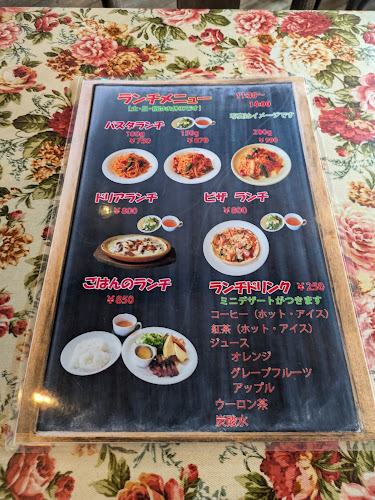 ランチメニュー 11:30～
14:00
写真はイメージです
パスタランチ
100g 150g 200g
￥870
ドリアランチ ピザ ランチ
￥800 ￥800
ごはんのランチ ランチドリンク ￥250
￥850 ミニデザートがつきます
コーヒー（ホット・アイス）
紅茶（ホット・アイス）
ジュース
オレンジ
グレープフルーツ
アップル
ウーロン茶
炭酸水